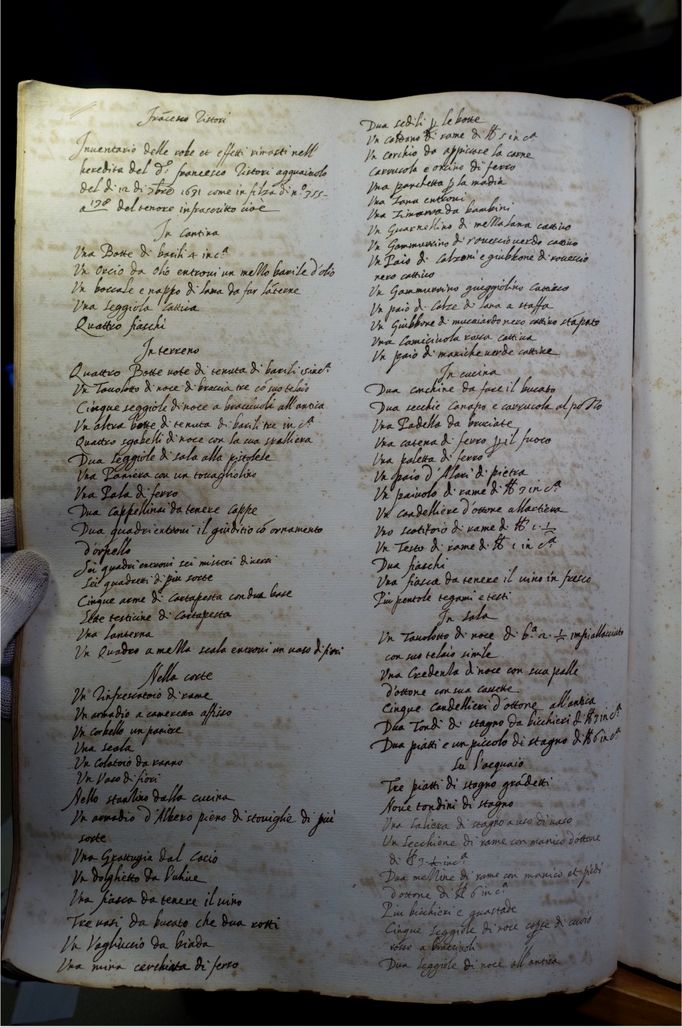 Francesco Pistori
Inventario delle robe et effetti rimasti nell
heredita del q. francesco Pistori acquaiolo
del di 12 di 7bre 1631 come in filza di n.o 355
a 138 del tenore infrascritto cioè
In Cantina
Una Botte di barili 4 in c.a
Un Orcio da olio entroni un mezzo barile d'olio
Un boccale e nappo di lama da far
Una Seggiola cattiva
Quattro fiaschi
In terreno
Quattro Botte vote di tenuta di barili in c.a
Un Tavolotto di noce di braccia tre co suo telaio
Cinque seggiole di noce a bracciuoli all'antica
Un altra botte di tenuta di barili tre in c.a
Quattro sgabelli di noce con la sua spalliera
Dua Seggiole di sala alla pistolese
Una Paniera con un tovagliolino
Una Pala di ferro
Dua Cappellinai da tenere cappe
Dua quadri entroni il giuditio co ornamento
d'orpello
Sei quadri entroni sei misteri diversi
Sei quadretti di più sorte
Cinque arme di cartapesta con dua base
Sette testicine di cartapesta
Una lanterna
Un Quadro a mezza scala entroni un vaso di fiori
Nella corte
Un Rinfrescatoio di rame
Un armadio a affisso
Un corbello un paniere
Una scala
Un colatoio da ranno
Un Vaso di fiori
Nello stanzino della cucina
Un armadio d'Albero pieno di stoviglie di più
sorte
Una Grattugia dal cacio
Un da l'uhue
Una fiasca da tenere il vino
Tre vasi da bucato che dua rotti
Un Vagliuccio da biada
Una mina cerchiata di ferro
Dua sedili p le botte
Un catono di rame di ℔ 5 in c.a
Un cerchio da appicare la carne
carrucola e oncino di ferro
Una panchetta p la madia
Una Zana entroni
Una Zimarra da bambini
Un Guarnellino di mezzalana cattivo
Un Gammurrino di rovescio verdo cattivo
Un Paio di Calzoni e giubbone di rovescio
nero cattivo
Un Gammurrino gueggiolino Camicio
Un paio di Calze di lana a staffa
Un Giubbone di mucaiardo nero cattivo stapato
Una Camiciuola rossa cattiva
Un paio di maniche verde cattive
In cucina
Dua conchine da fare il bucato
Dua secchie Canapo e carrucola al pozzo
Una Padella da bruciate
Una catena di ferro p il fuoco
Una paletta di ferro
Un paio d'Alari di pietra
Un paiuolo di rame di ℔ 3 in c.a
Un candelliere d'ottone
Uno scaldaletto di rame di ℔
Un Testo di rame di ℔ 1 in c.a
Dua fiaschi
Una fiasca da tenere il vino in fresco
Più pentole tegami e testi
In sala
Un Tavolotto di noce di b.a 2 ½ impiallacciato
con suo telaio simile
Una Credenza di noce con sua palle
d'ottone con sua cassette
Cinque candellieri d'ottone all'antica
Dua Tondi di stagno da bicchieri di ℔ 3 in c.a
Dua piatti e un piccolo di stagno di ℔ 6 in c.a
Su l'acquaio
Tre piatti di stagno gradetti
Nove tondini di stagno
Una Saliera di stagno a uso di vaso
Un Secchione di rame con manico d'ottone
di ℔ 3 ½ in c.a
Dua mezzine di rame con manico et piedi
d'ottone di ℔ 6 in c.a
Più bicchieri e guastade
Cinque Seggiole di noce di cuoio
rosse a bracciuoli
Dua Seggiole di noce all'antica